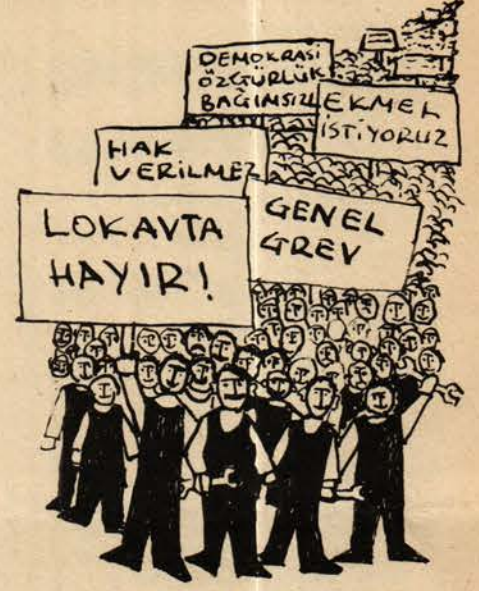 DEMOKRASİ
ÖZGÜRLÜK
BAĞIMSIZL
EKMEL
İSTİYORUZ
HAK
VERİLMEZ
GENEL
GREV
LOKAVTA
HAYIR!